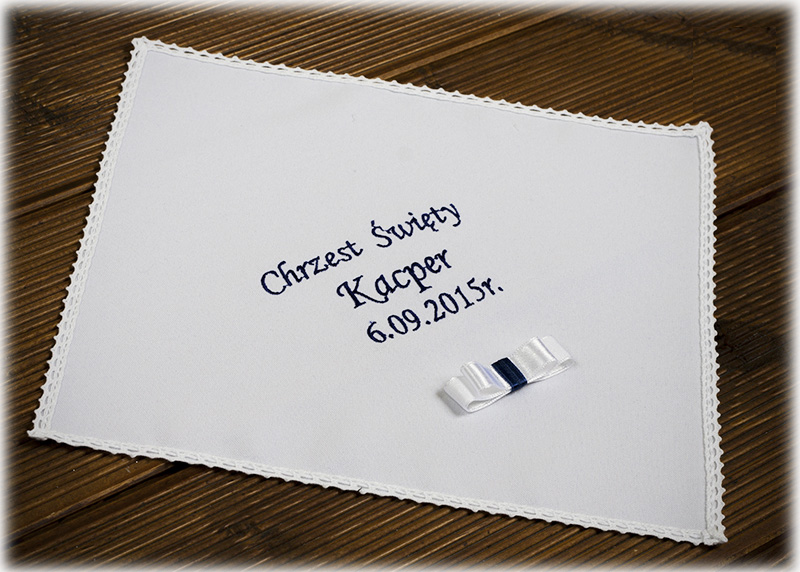 Chrzest Święty
Kacper
6.09.2015r.